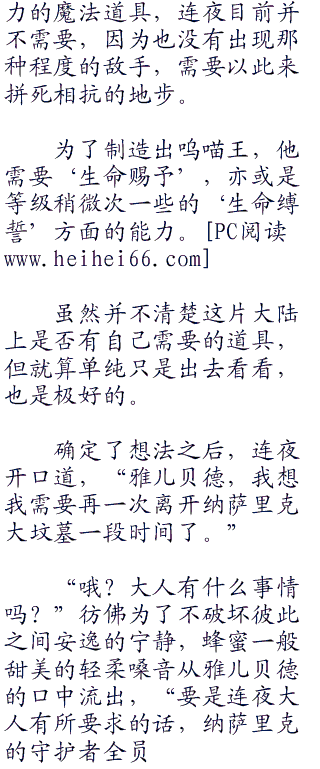 力的魔法道具，连夜目前并
不需要，因为也没有出现那
种程度的敌手，需要以此来
拼死相抗的地步。
为了制造出呜喵王，他
需要‘生命赐予’，亦或是
等级稍微次一些的‘生命缚
誓’方面的能力。[PC阅读
www.heihei66.com]
虽然并不清楚这片大陆
上是否有自己需要的道具，
但就算单纯只是出去看看，
也是极好的。
确定了想法之后，连夜
开口道，“雅儿贝德，我想
我需要再一次离开纳萨里克
大坟墓一段时间了。”
“哦？大人有什么事情
吗？”彷佛为了不破坏彼此
之间安逸的宁静，蜂蜜一般
甜美的轻柔嗓音从雅儿贝德
的口中流出，“要是连夜大
人有所要求的话，纳萨里克
的守护者全员